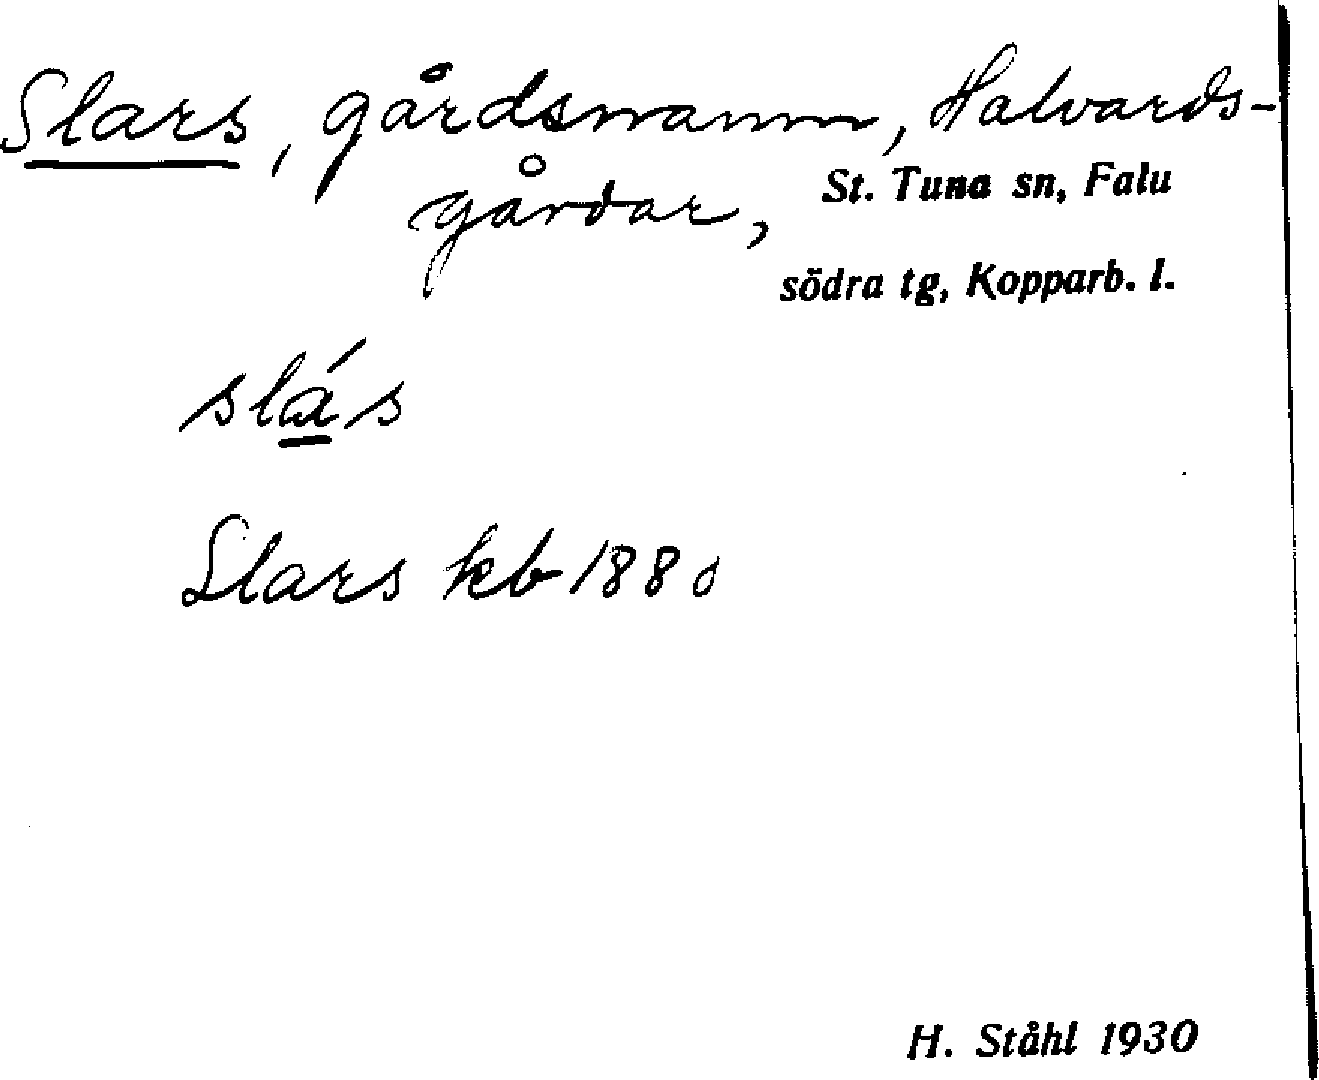 Slars, gårdsnamn, Halvards-
gårdar, St. Tuna sn, Falu
södra tg, Kopparb. l.
slá̱s
Slars kb 1880
H. Ståhl 1930